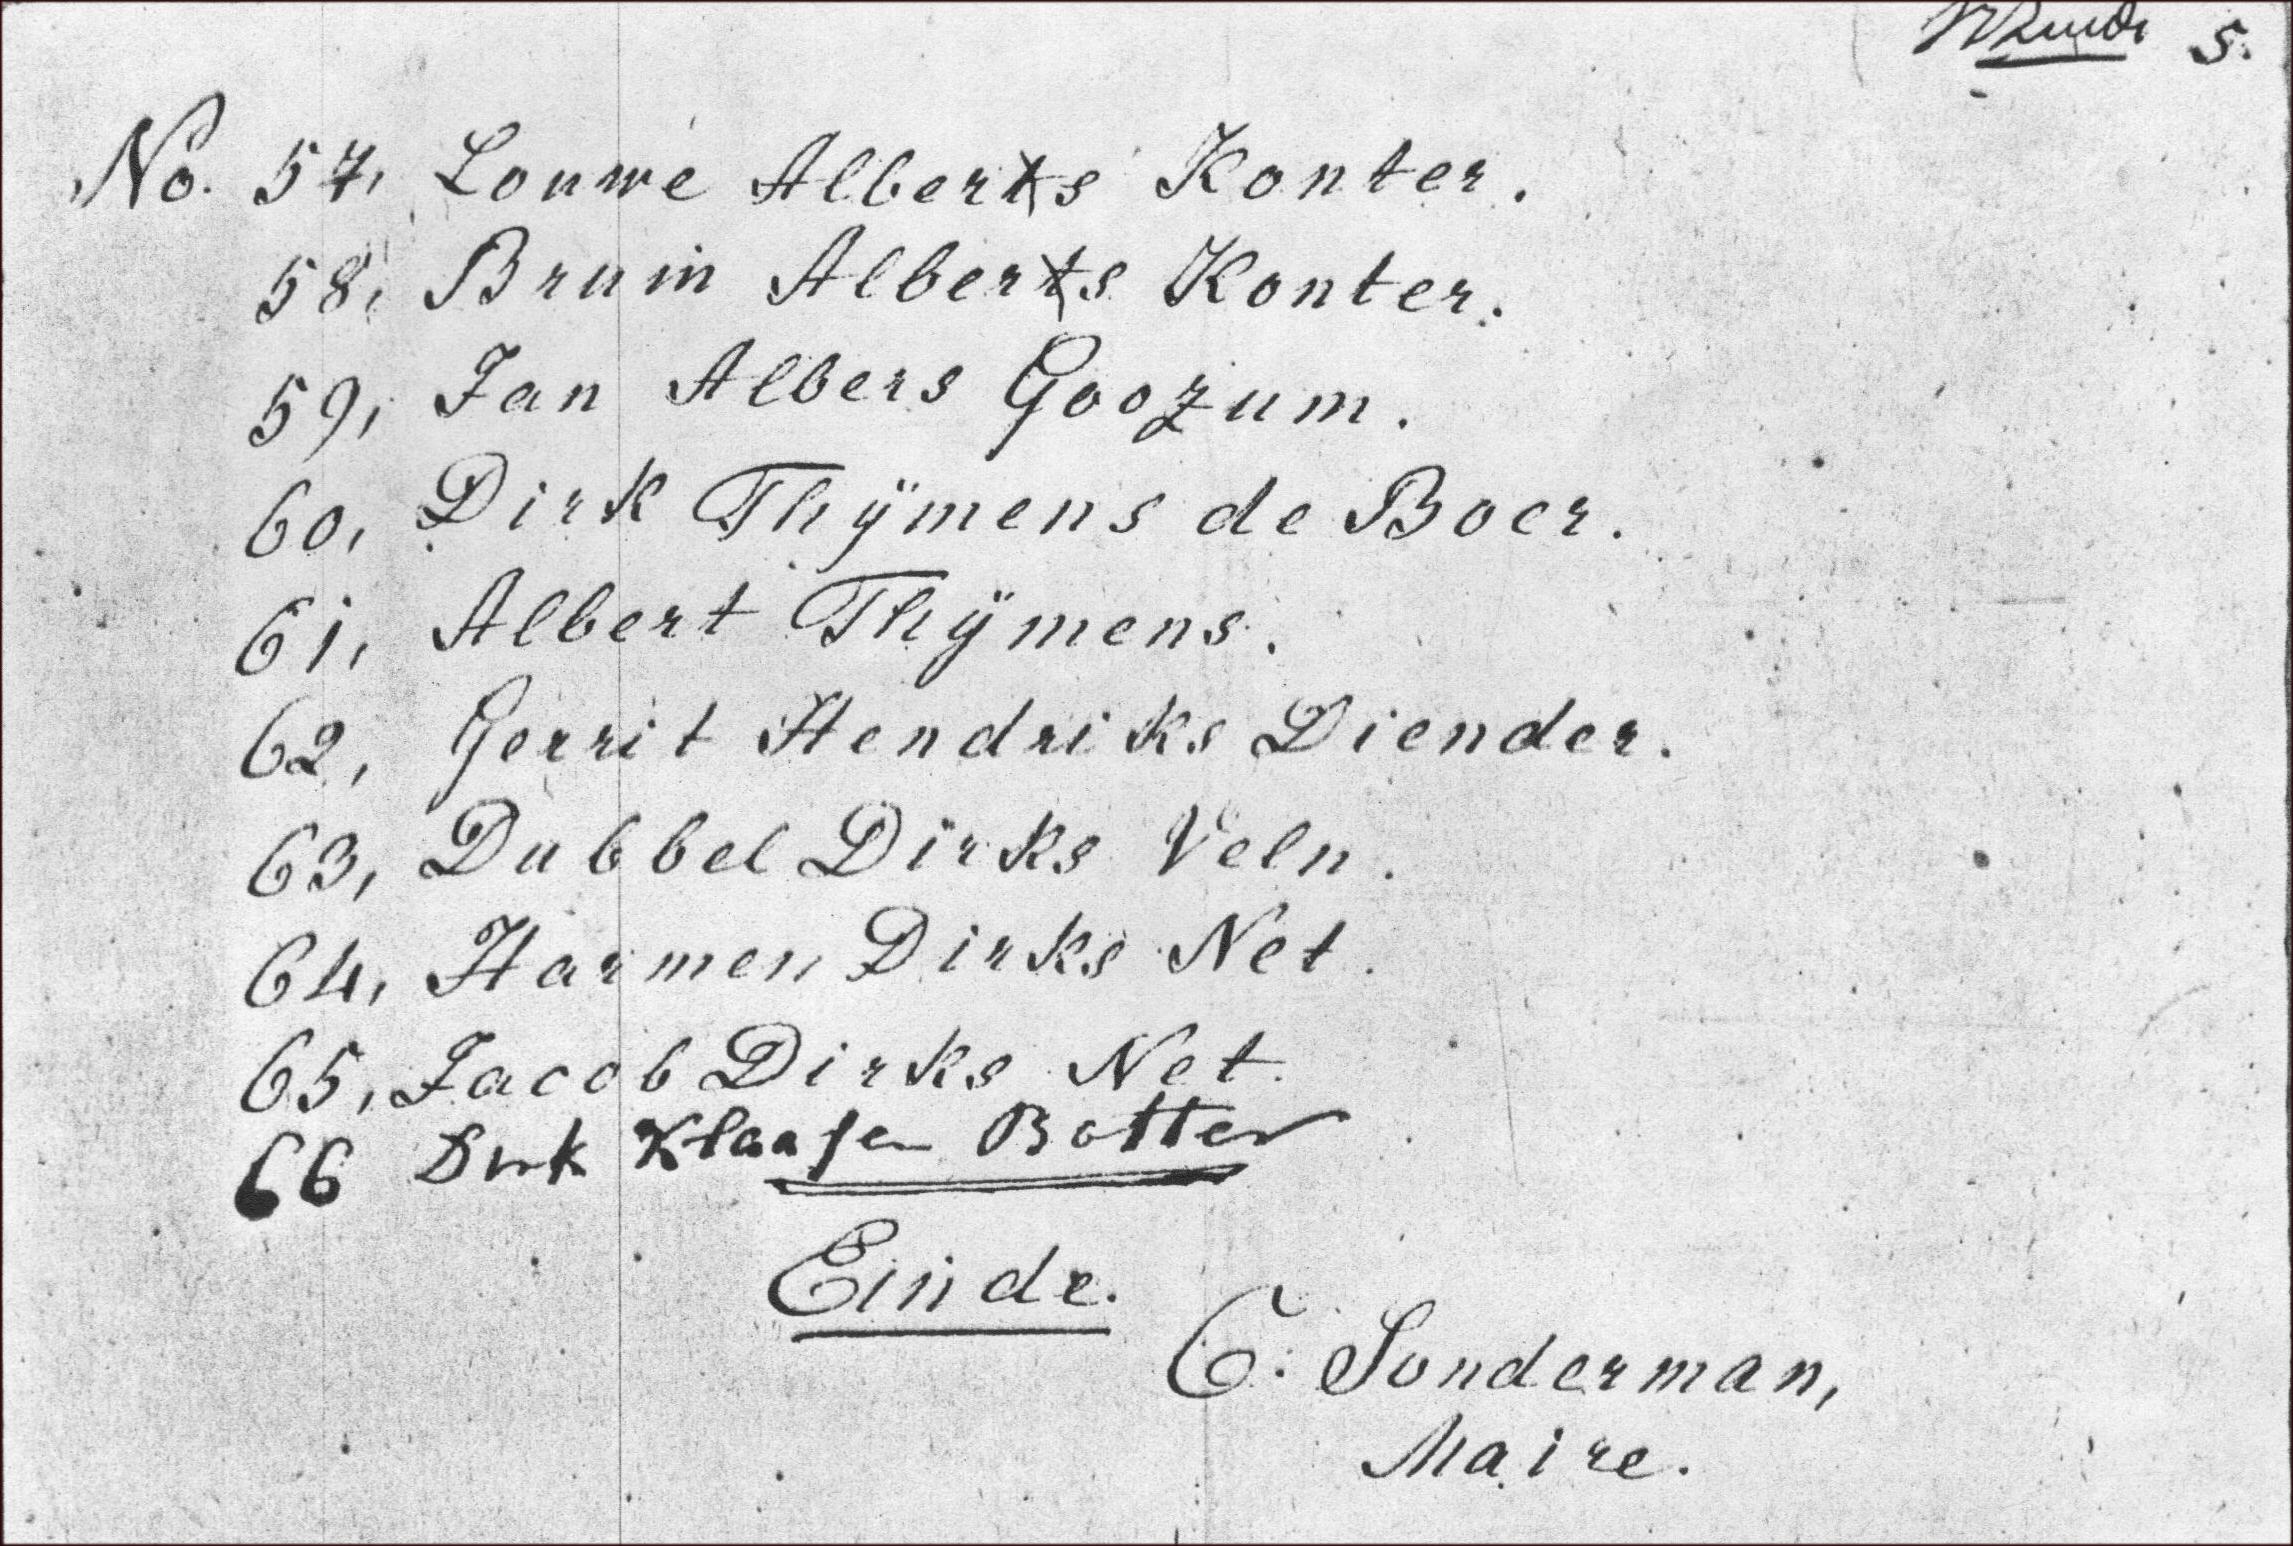 5.
No. 57, Louwe Alberts Konter.
58, Bruin Alberts Konter.
59, Jan Albers Goozum.
60, Dirk Thÿmens de Boer.
61, Albert Thÿmens.
62, Gerrit Hendriks Diender.
63, Dubbel Dirks Veln.
64, Harmen Dirks Net.
65, Jacob Dirks Net.
66 Dirk Klaasen Botter
Einde.
C. Sonderman,
Maire.